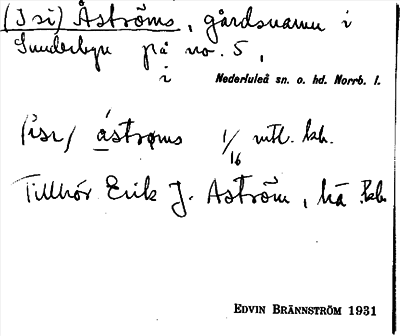 (I si) Åströms, gårdsnamn i
Sunderbyn på no. 5,
i Nederluleå sn. o. hd. Norrb. l.
(isı) ástrøms 1/16 mtl. kb.
Tillhör Erik J. Åström, kb.
EDVIN BRÄNNSTRÖM 1931